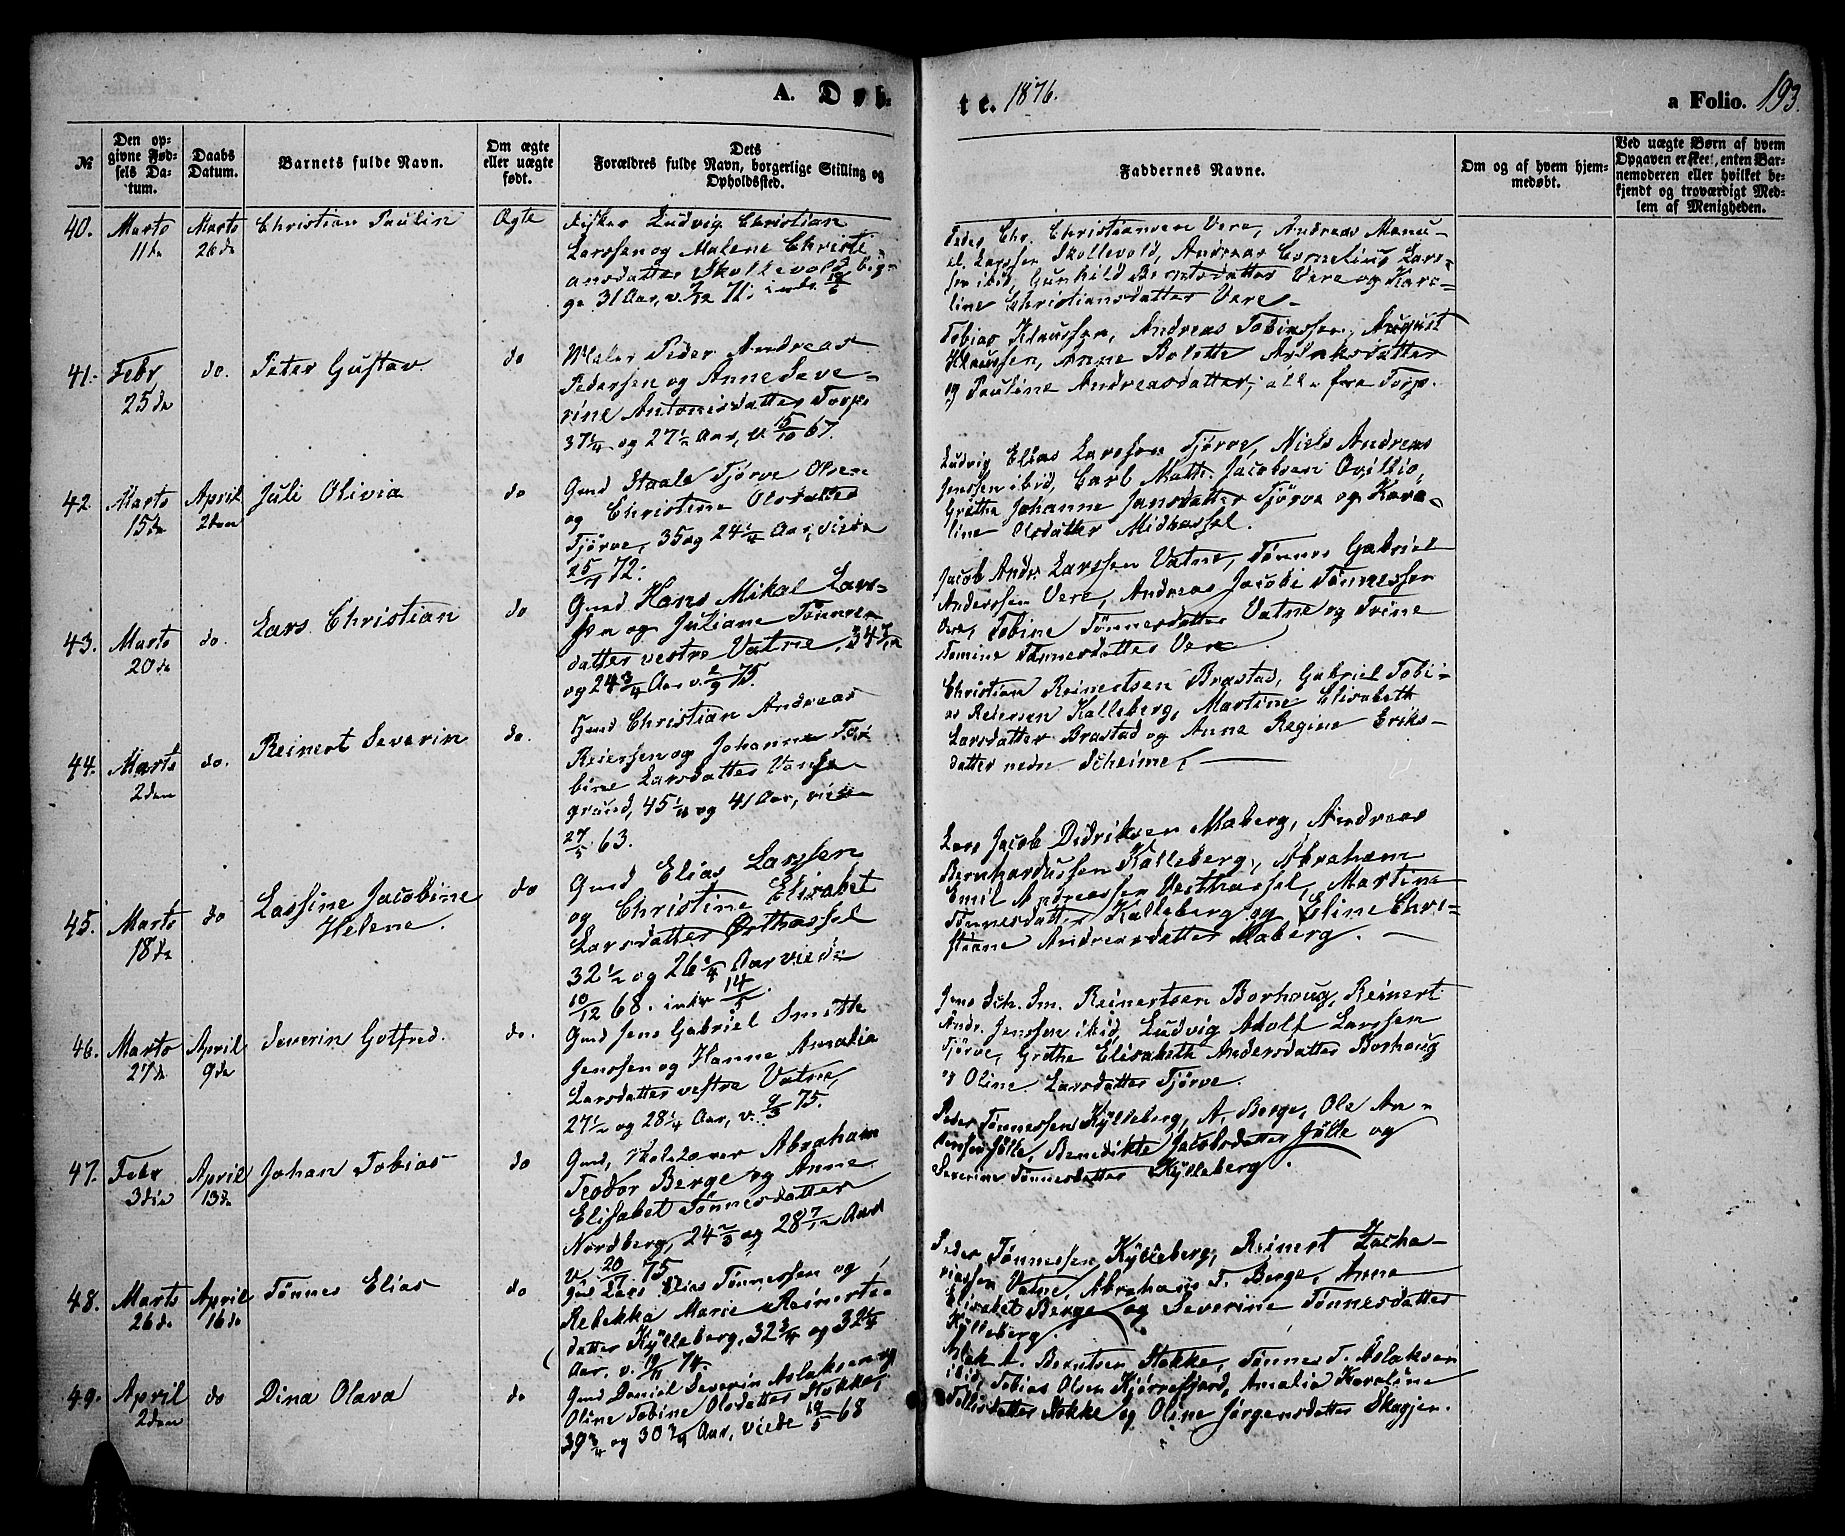 A. Døb-
te. 1876.
a Folio. 193.
№
Den op-
givne Fød-
sels Da-
tum.
Daabs
Datum.
Barnets fulde Navn.
Om ægte
eller uægte
født.
Dets
Forældres fulde Navn, borgerlige Stilling og
Opholdssted.
Faddernes Navne.
Om og af hvem hjem-
medøbt.
Ved uægte Børn af hvem
Opgaven er skeet, enten Bar-
nemoderen eller hvilket be-
kjendt og troværdigt Med-
lem af Menigheden.
40. Marts
11te
Marts
26de
Christian Paulin
Ægte
Fisker Ludvig Christian
Larssen og Malene Christi
ansdatter Skollevold, beg-
ge 31 Aar, v. 7/12 71;
Peder Chr. Christiansen Vere, Andreas Manu-
el Larssen Skollevold, Andreas Cornelius Lars-
sen ibid, Gunhild Berntsdatter Vere og Karo-
line Christiansdatter Vere.
41. Febr
25de
do.
Peter Gustav
do
Maler Peder Andreas
Pedersen og Anne Seve-
rine Antonisdatter Torp
37 1/4 og 27 1/2 Aar, v. 15/10 67.
Tobias Klaussen, Andreas Tobiassen, August
Klaussen, Anne Bolette Aslaksdatter
og Pauline Andreasdatter, alle fra Torp.
42. Marts
15de
April
2den
Juli Olivia
do
Gmd Staale Tjørve Olsen
og Christine Olsdatter
Tjørve, 35 og 24 1/4 Aar, viede
25/4 72.
Ludvig Elias Larssen Tjørve, Niels Andreas
Jenssen ibid, Carl Math. Jacobsen
Grethe Johanne Jansdatter Tjørve og Karo-
line Olsdatter Midhassel.
43. Marts
20de
do.
Lars Christian
do
Gmd Hans Mikal Lars-
sen og Juliane Tønnes
datter vestre Vatne, 34
og 24 3/4 Aar v. 2/9 75.
Jacob Andr. Larssen Vatne, Tønnes Gabriel
Anderssen Vere, Andreas Jacobi Tønnessen
Vere, Tobine Tønnesdatter Vatne og Trine
Tomine Tønnesdatter Vere.
44. Marts
2den
do.
Reinert Severin
do.
Gmd Christian Andreas
Reierssen og Johanne To-
bine Larsdatter Vanse-
grund, 45 1/4 og 41 Aar, viede
27/5 63.
Christian Reinertsen Brastad, Gabriel Tobi-
as Pedersen Kalleberg, Martine Elisabeth
Larsdatter Brastad og Anne Regine Eriks-
datter nedre Skeime,
45. Marts
18de
do
Lassine Jacobine
Helene.
do
Gmd Elias Larssen
og Christine Elisabet
Larsdatter Østhassel
32 1/2 og 26 1/4 Aar viede
10/12 68. 14/5.
Lars Jacob Didriksen Maberg, Andreas
Bernhardussen Kalleberg, Abraham
Emil Andreassen Vesthassel, Martine
Tønnesdatter Kalleberg og Eline Chri-
stiane Andreasdatter Maberg.
46. Marts
27de
April
9de
Severin Gotfred.
do.
Gmd Jens Gabriel Smith
Jenssen og Hanne Amalia
Larsdatter vestre Vatne,
27 1/2 og 28 1/4 Aar, v. 9/3 75.
Jens Sch. Sm. Reinertsen Borhaug, Reinert
Andr. Jenssen ibid, Ludvig Adolf Larssen
Tjørve, Grethe Elisabeth Andersdatter Borhaug
og Oline Larsdatter Tjørve.
47. Febr
3die
April
13de
Johan Tobias
do
Gmd, Skolelærer Abraham
Teodor Berge og Anne
Elisabet Tønnesdatter
Nordberg, 24 2/3 og 28 7/12 Aar
v. 20/11 75
Peder Tønnessen Kylleberg, A. Berge, Ole An-
Jølle, Benedikte Jacobsdatter Jølle og
Severine Tønnesdatter Kylleberg.
48. Marts
26de
April
16de
Tønnes Elias
do
Gmd Lars Elias Tønnessen og
Rebekka Marie Reinerts-
datter Kylleberg, 32 3/4 og 32 1/4
Aar, v. 74.
Peder Tønnessen Kylleberg, Reinert Zacha-
riassen Vatne, Abraham T. Berge, Anne
Elisabet Berge og Severine Tønnesdatter
Kylleberg.
49. April
2den
do
Dina Olava
do
Gmd Daniel Severin Aslaksen og
Oline Tobine Olsdatter Stokke,
39 3/4 og 30 3/4 Aar, viede 19/5 68
A. Berntsen Stokke, Tønnes T. Aslaksen
ibid, Tobias Olsen Kjørrefjord, Amalia Karoline
Stokke og Oline Jørgensdatter Skagjen.